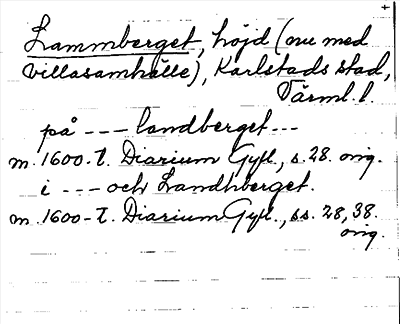 +
Lammberget, höjd (nu med
villasamhälle), Karlstads stad,
Värml. l.
på --- landberget---
m. 1600-t. Diarium Gyll., s. 28. orig.
i --- och Landhberget.
m. 1600-t. Diarium Gyll., ss. 28, 38.
orig.